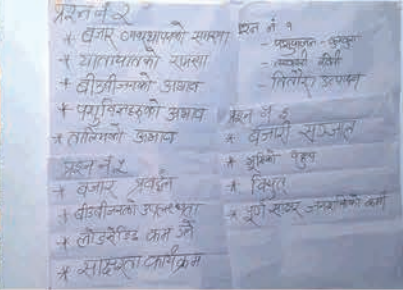 प्रश्न नं २
* बजार व्यवस्थापनको समस्या
* यातायातको समस्या
* बीउबीजनको अभाव
* पशुविज्ञहरुको अभाव
* तालिमको अभाव
प्रश्न नं ५
* बजार प्रवर्द्धन
* बीउबीजनको उपलब्धता
* लोडसेडिङ कम गर्ने
* साक्षरता कार्यक्रम
प्रश्न नं १
- पशुपालन - कुखुरा
- तरकारी खेती
- उत्पादन
प्रश्न नं ३
* बजारी सञ्जाल
* भूमिको पहुँच
* विद्युत
* पूर्ण साक्षर